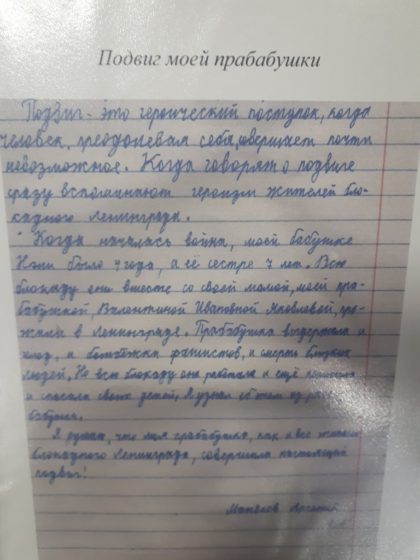 Подвиг моей прабабушки
Подвиг - это героический поступок, когда
человек, преодолевая себя, совершает почти
невозможное. Когда говорят о подвиге
сразу вспоминают героизм жителей бло-
кадного Ленинграда.
Когда началась война, моей бабушке
было 4 года, а её сестре 7 лет. Всю
блокаду они вместе со своей мамой, моей пра-
бабушкой, Валентиной Ивановной Яковлевой, про-
жили в Ленинграде. Прабабушка выдержала и
и бомбёжки фашистов, и смерть близких
людей. Но всю блокаду она работала и ещё
и спасала своих детей. Я узнал об этом из
бабушки.
Я думаю, что моя прабабушка, как и все жители
блокадного Ленинграда, совершила настоящий
подвиг!
Матвеев